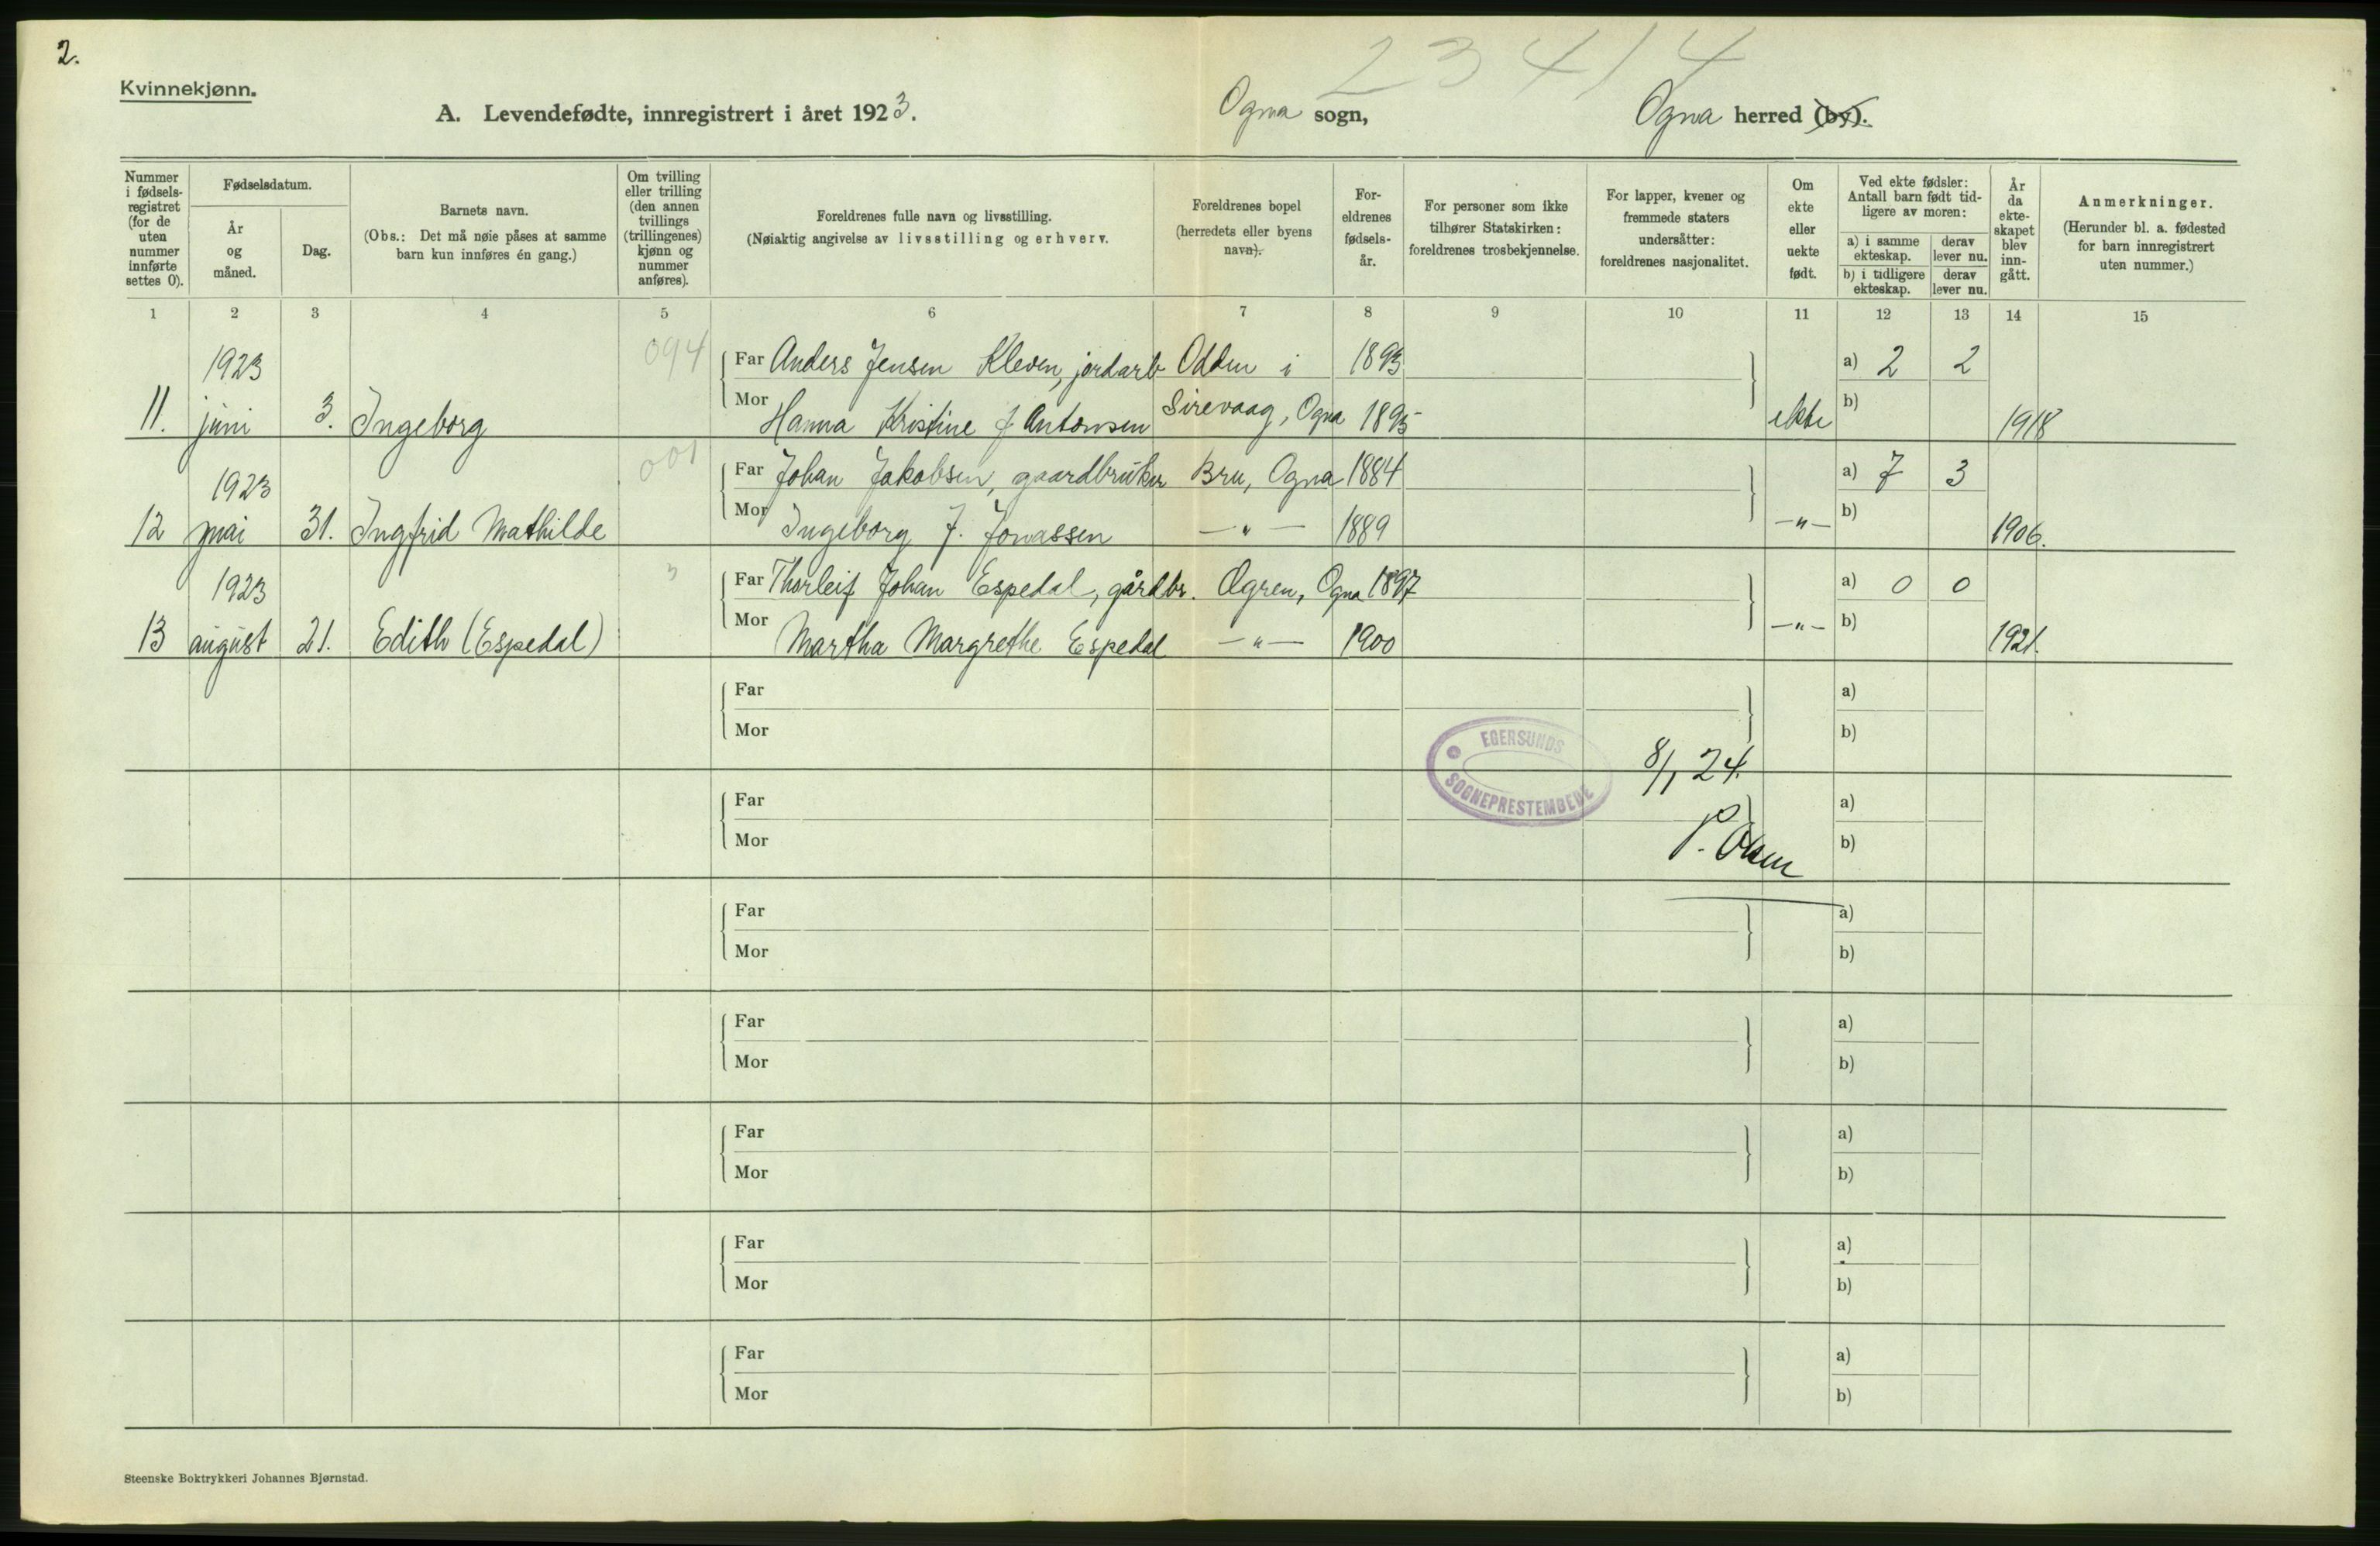 2.
Kvinnekjønn.
23414
A. Levendefødte, innregistrert i året 1923. Ogna sogn, Ogna herred (by).
Nummer i fødsels-registret (for de uten nummer innførte settes 0).
Fødselsdatum.
År og måned.
Dag.
Barnets navn.
(Obs.: Det må nøie påses at samme barn kun innføres én gang.)
Om tvilling eller trilling (den annen tvillings (trillingenes) kjønn og nummer anføres).
Foreldrenes fulle navn og livsstilling.
(Nøiaktig angivelse av livsstilling og erhverv.
Foreldrenes bopel (herredets eller byens navn).
For-eldrenes fødsels-år.
For personer som ikke tilhører Statskirken: foreldrenes trosbekjennelse.
For lapper, kvener og fremmede staters undersåtter: foreldrenes nasjonalitet.
Om ekte eller uekte født.
Ved ekte fødsler: Antall barn født tid-ligere av moren:
a) i samme ekteskap. derav lever nu.
b) i tidligere ekteskap. derav lever nu.
År da ekte-skapet blev inn-gått.
Anmerkninger.
(Herunder bl. a. fødested for barn innregistrert uten nummer.)
1 2 3 4 5 6 7 8 9 10 11 12 13 14 15
1923 094 Far Anders Jensen Kleven, jordarb Odden i 1893 a) 2 2
11. juni 3. Ingeborg Mor Hanna Kristine J Antonsen Sirevaag, Ogna 1895 ekte b) 1918
1923 001 Far Johan Jakobsen, gaardbruker Bru, Ogna 1884 a) 7 3
12 mai 31. Ingfrid Mathilde Mor Ingeborg J. Jonassen —"— 1889 —"— b) 1906.
1923 3 Far Thorleif Johan Espedal, gårdbr. Øgren, Ogna 1897 a) 0 0
13 august 21. Edith (Espedal) Mor Martha Margrethe Espedal —"— 1900 —"— b) 1921.
Far a)
Mor b)
EGERSUNDS SOGNEPRESTEMBEDE
8/1 24.
Far a)
Mor b)
P.
Far a)
Mor b)
Far a)
Mor b)
Far a)
Mor b)
Far a)
Mor b)
Far a)
Mor b)
Steenske Boktrykkeri Johannes Bjørnstad.